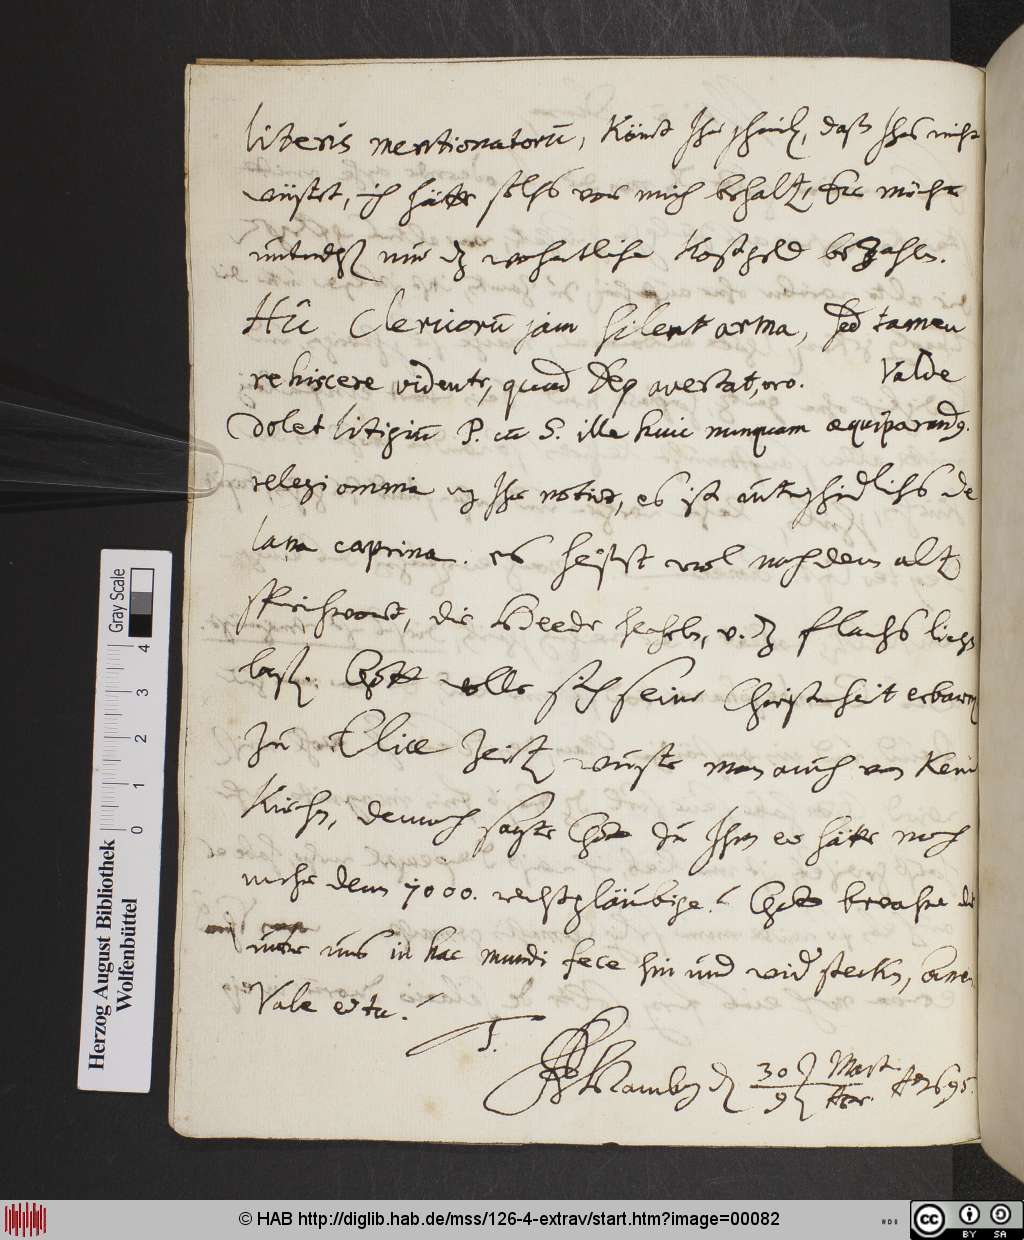 literis mentionatorũ, Könt Ihr schreib, daß Ihrs nicht
wüstet, ich hätte selbs vor mich behalt, Er möchte
unterdeß nur dz wochentliche Kostgeld bezahlen.
Hîc Clericorũ jam silent arma, sed tamen
rehiscere videntr, quod Deꝰ avertat, oro. Valde
dolet litigiũ P. cũ S. ille huic nunquam æquiparandꝰ.
relegi omnia Ihr notirt, es ist de
lana caprina. es heisst wol nach dem alt
sprichwort, die Heede hecheln, v. dz flachs liegn
lassn. Gott wolle sich seiner Christenheit erbarmn
Zu Eliæ Zeiten wuste man auch von kein
Kirchn, dennoch sagte Gott zu Ihm er hätte noch
mehr denn 7000. rechtgläubige! Gott bewahre die
wir uns in hac mundi fece hin und wider steckn, Amen
Vale et tu!
T.
Hamburg d. 30 Mart. 1695.
9 Apr.
Herzog August Bibliothek
Wolfenbüttel
0 1 2 3 4
Gray Scale
© HAB http://diglib.hab.de/mss/126-4-extrav/start.htm?image=00082
cc BY SA